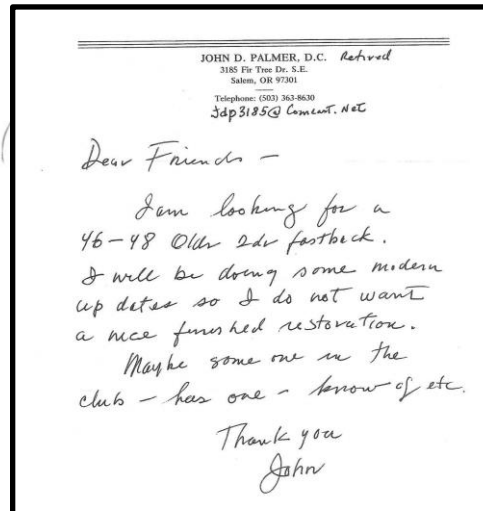 JOHN D. PALMER, D.C. Retired
3185 Fir Tree Dr. S.E.
Salem, OR 97301
Telephone: (503) 363-8630
Jdp3185@Comcast.Net
Dear Friends –
I am looking for a
46–48 Olds 2dr fastback.
I will be doing some modern
up dates so I do not want
a nice finished restoration.
Maybe some one in the
club – has one – know of etc.
Thank you
John